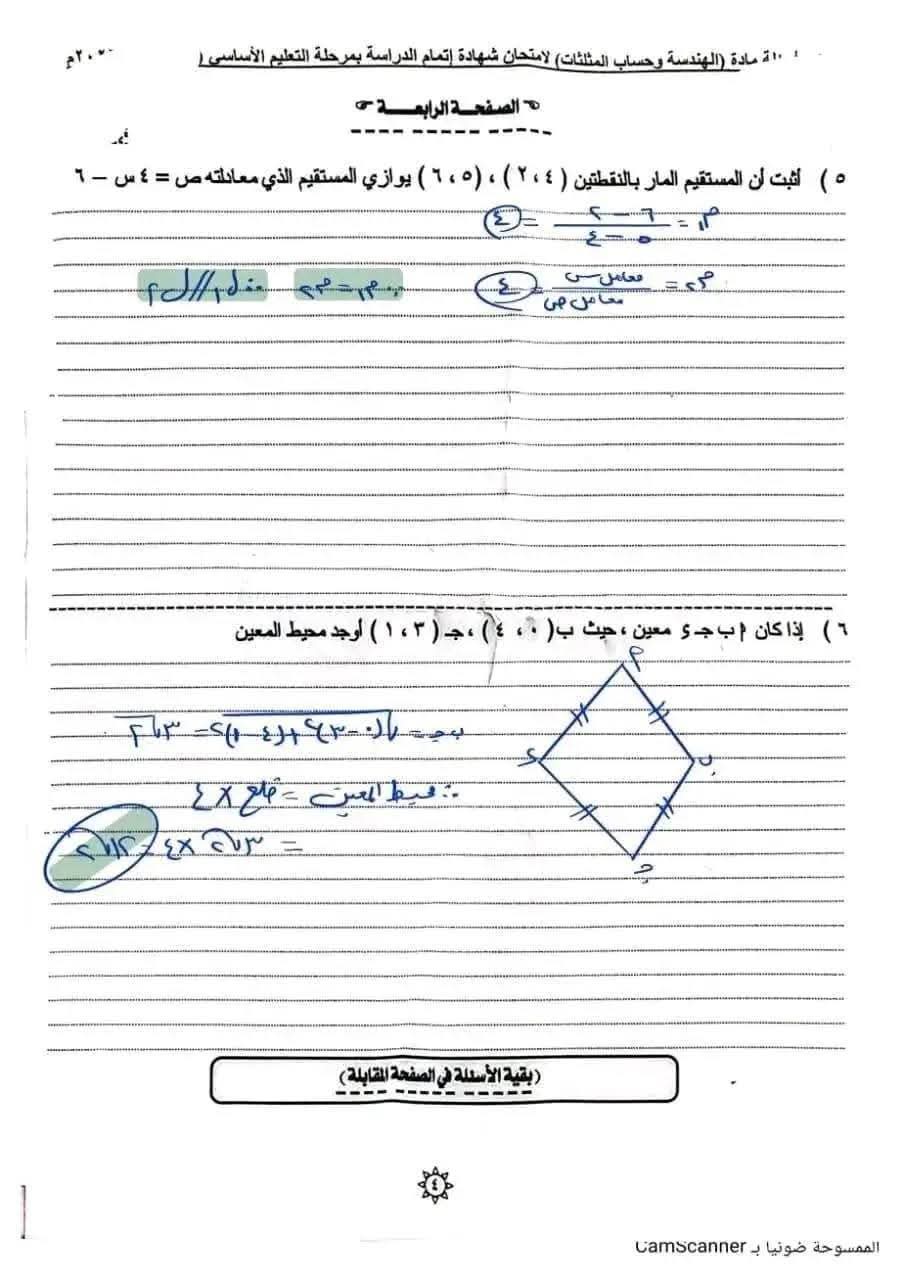 مادة (الهندسة وحساب المثلثات) لامتحان شهادة إتمام الدراسة بمرحلة التعليم الأساسي (
الصفحة الرابعة
٥ ) أثبت أن المستقيم المار بالنقطتين ( ٤ ، ٢ ) ، ( ٥ ، ٦ ) يوازي المستقيم الذي معادلته ص = ٤ س – ٦
م١ = (٦ – ٢) / (٥ – ٤) = ٤
م٢ = معامل س / معامل ص = ٤ ∵ م١ = م٢ ∴ ل١ // ل٢
٦ ) إذا كان ا ب جـ د معين ، حيث ب ( ٠ ، ٤ ) ، جـ ( ٣ ، ١ ) أوجد محيط المعين
ب جـ = √(٠ – ٣)٢ + (٤ – ١)٢ = ٣√٢
∴ محيط المعين = ضلع × ٤
= ٣√٢ × ٤ = ١٢√٢
م
ب
د
جـ
(بقية الأسئلة في الصفحة المقابلة)
٤
الممسوحة ضوئيا بـ CamScanner